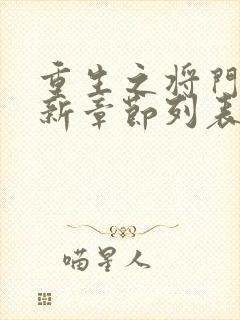 重生之将门
新章节列表
喵星人